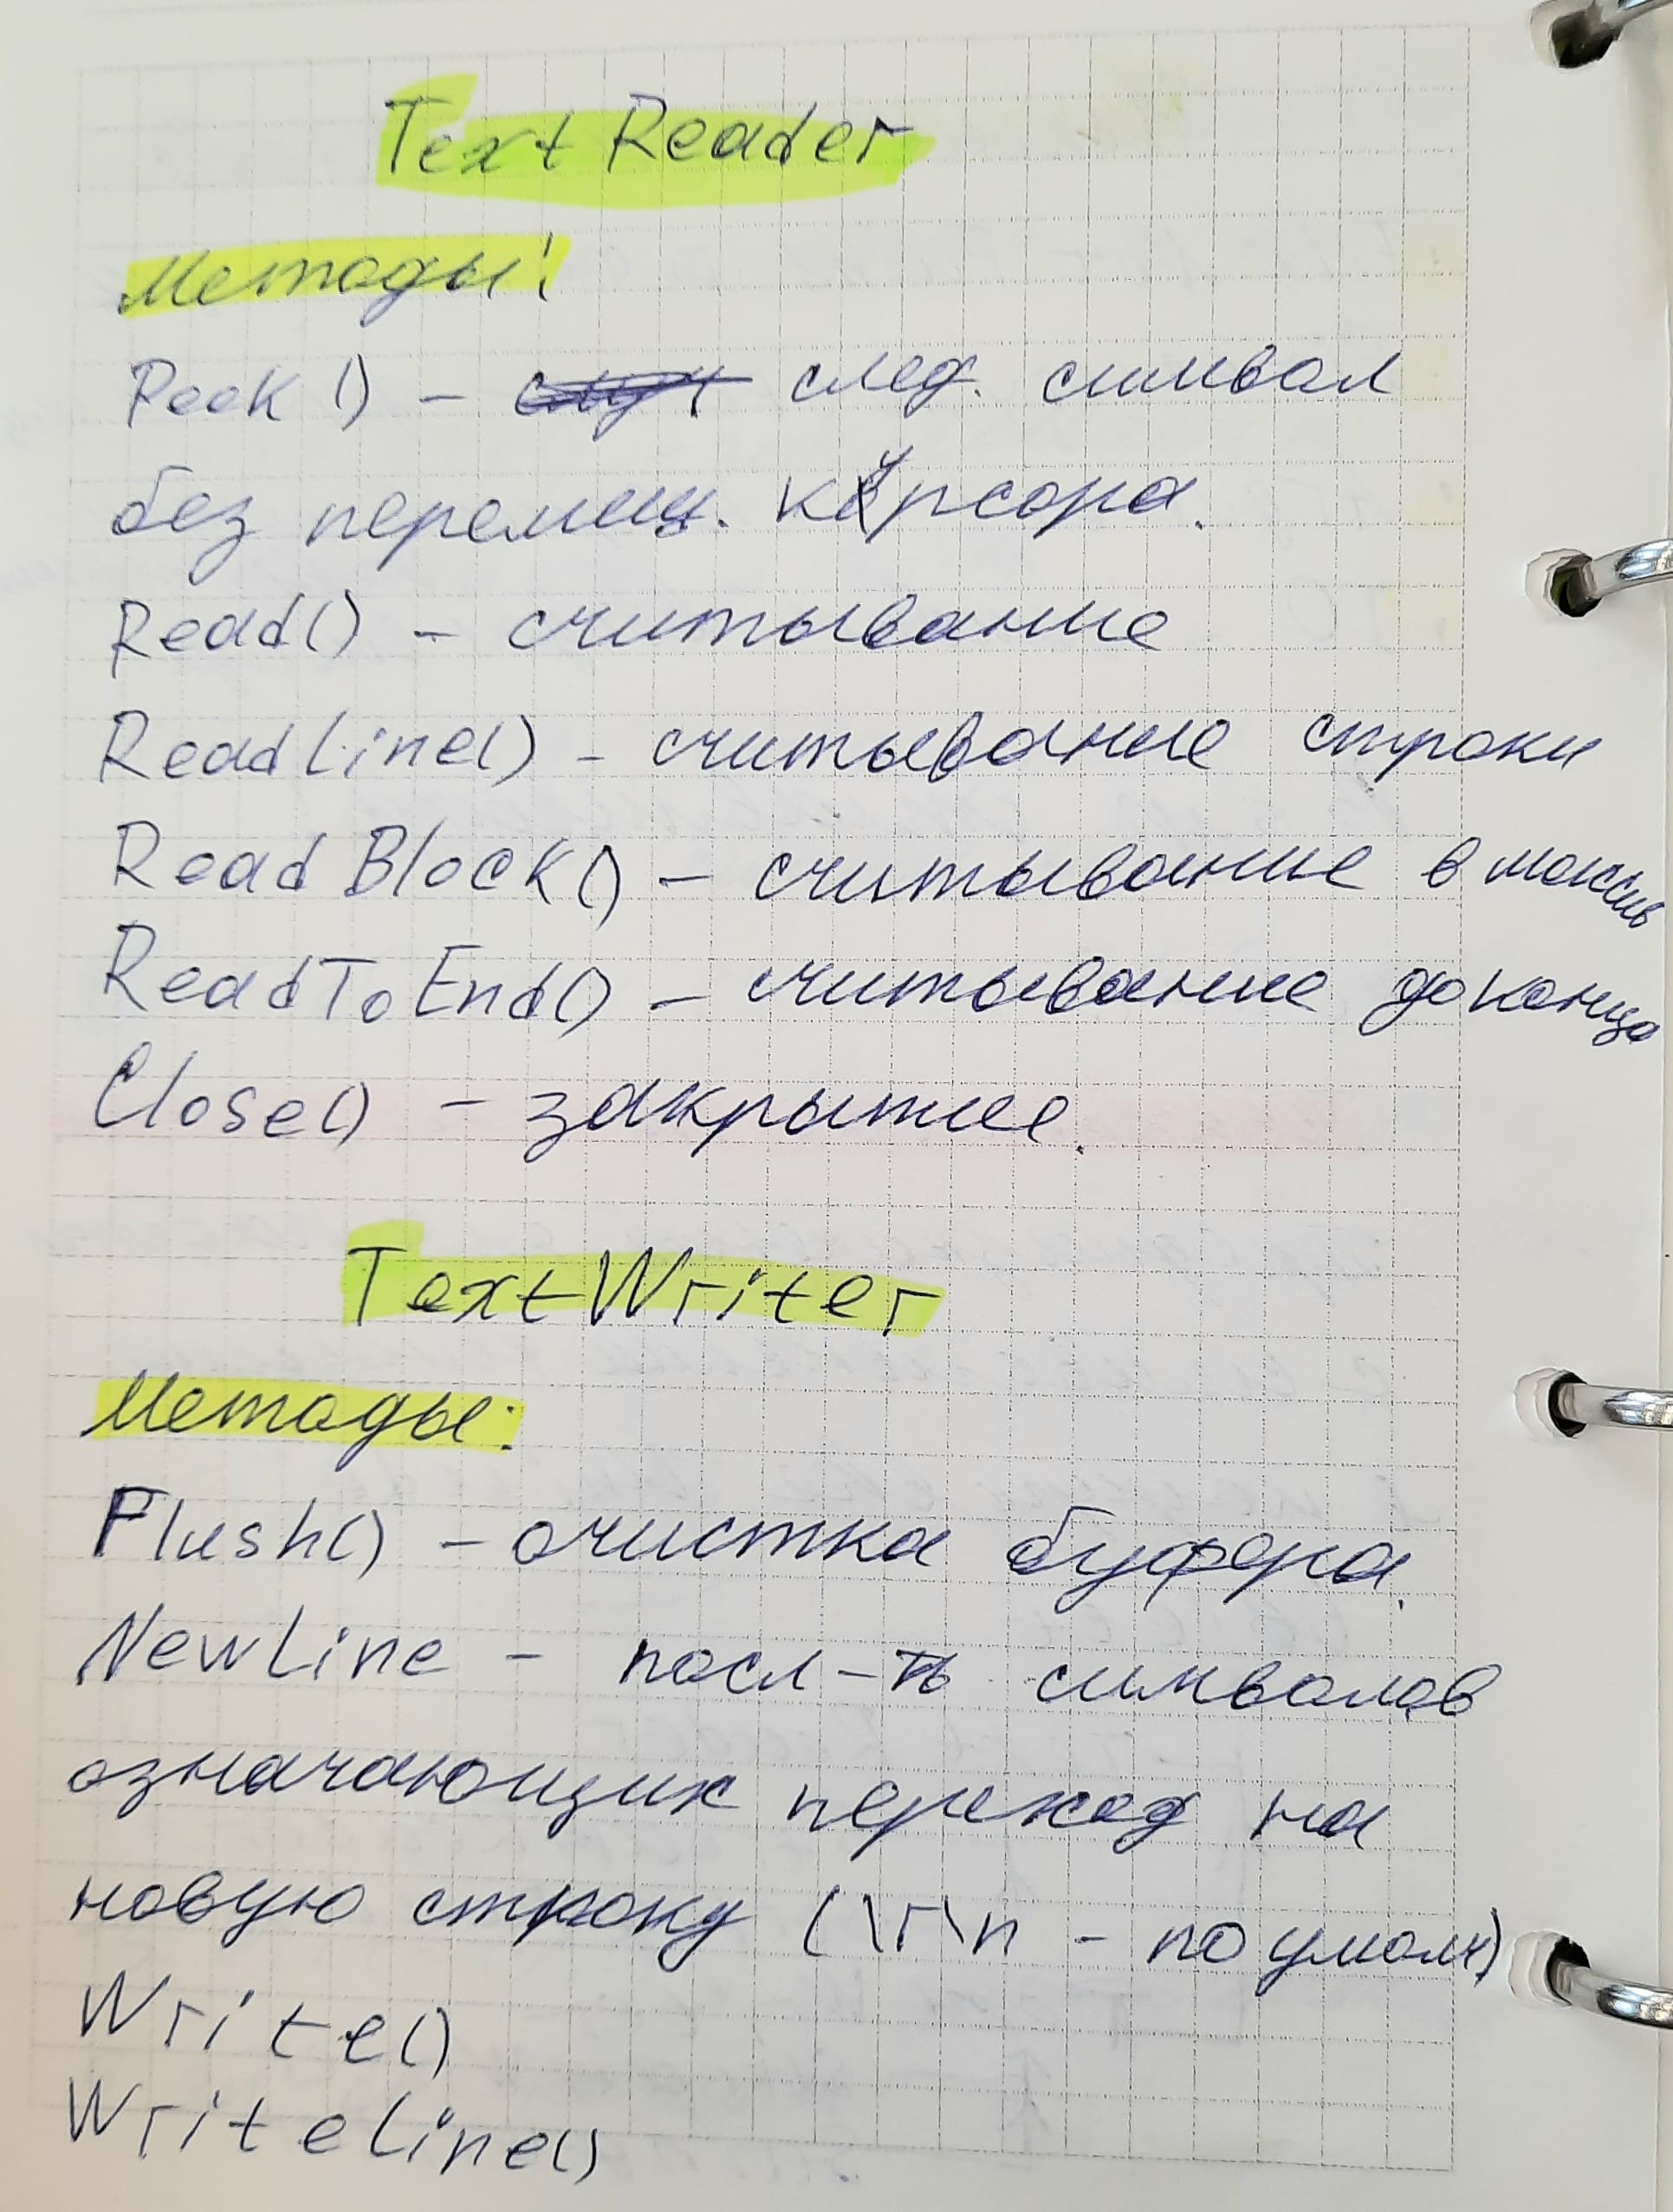 TextReader
Методы:
Peek() - след. символ
без перемещ. курсора.
Read() - считывание
ReadLine() - считывание строки
ReadBlock() - считывание в массив
ReadToEnd() - считывание до конца
Close() - закрытие.
TextWriter
Методы:
Flush() - очистка буфера.
NewLine - посл-ть символов
означающих переход на
новую строку (\r\n - по умолч)
Write()
WriteLine()